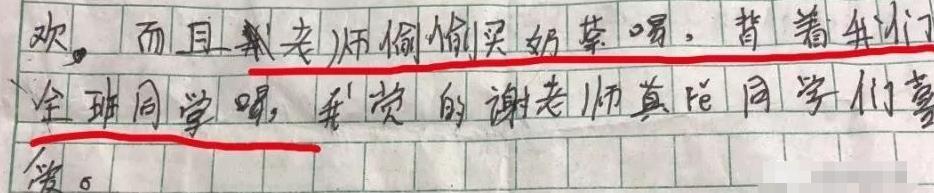 欢。而且老师偷偷买奶茶喝，背着我们
全班同学喝，我觉的谢老师真rě同学们喜
爱。